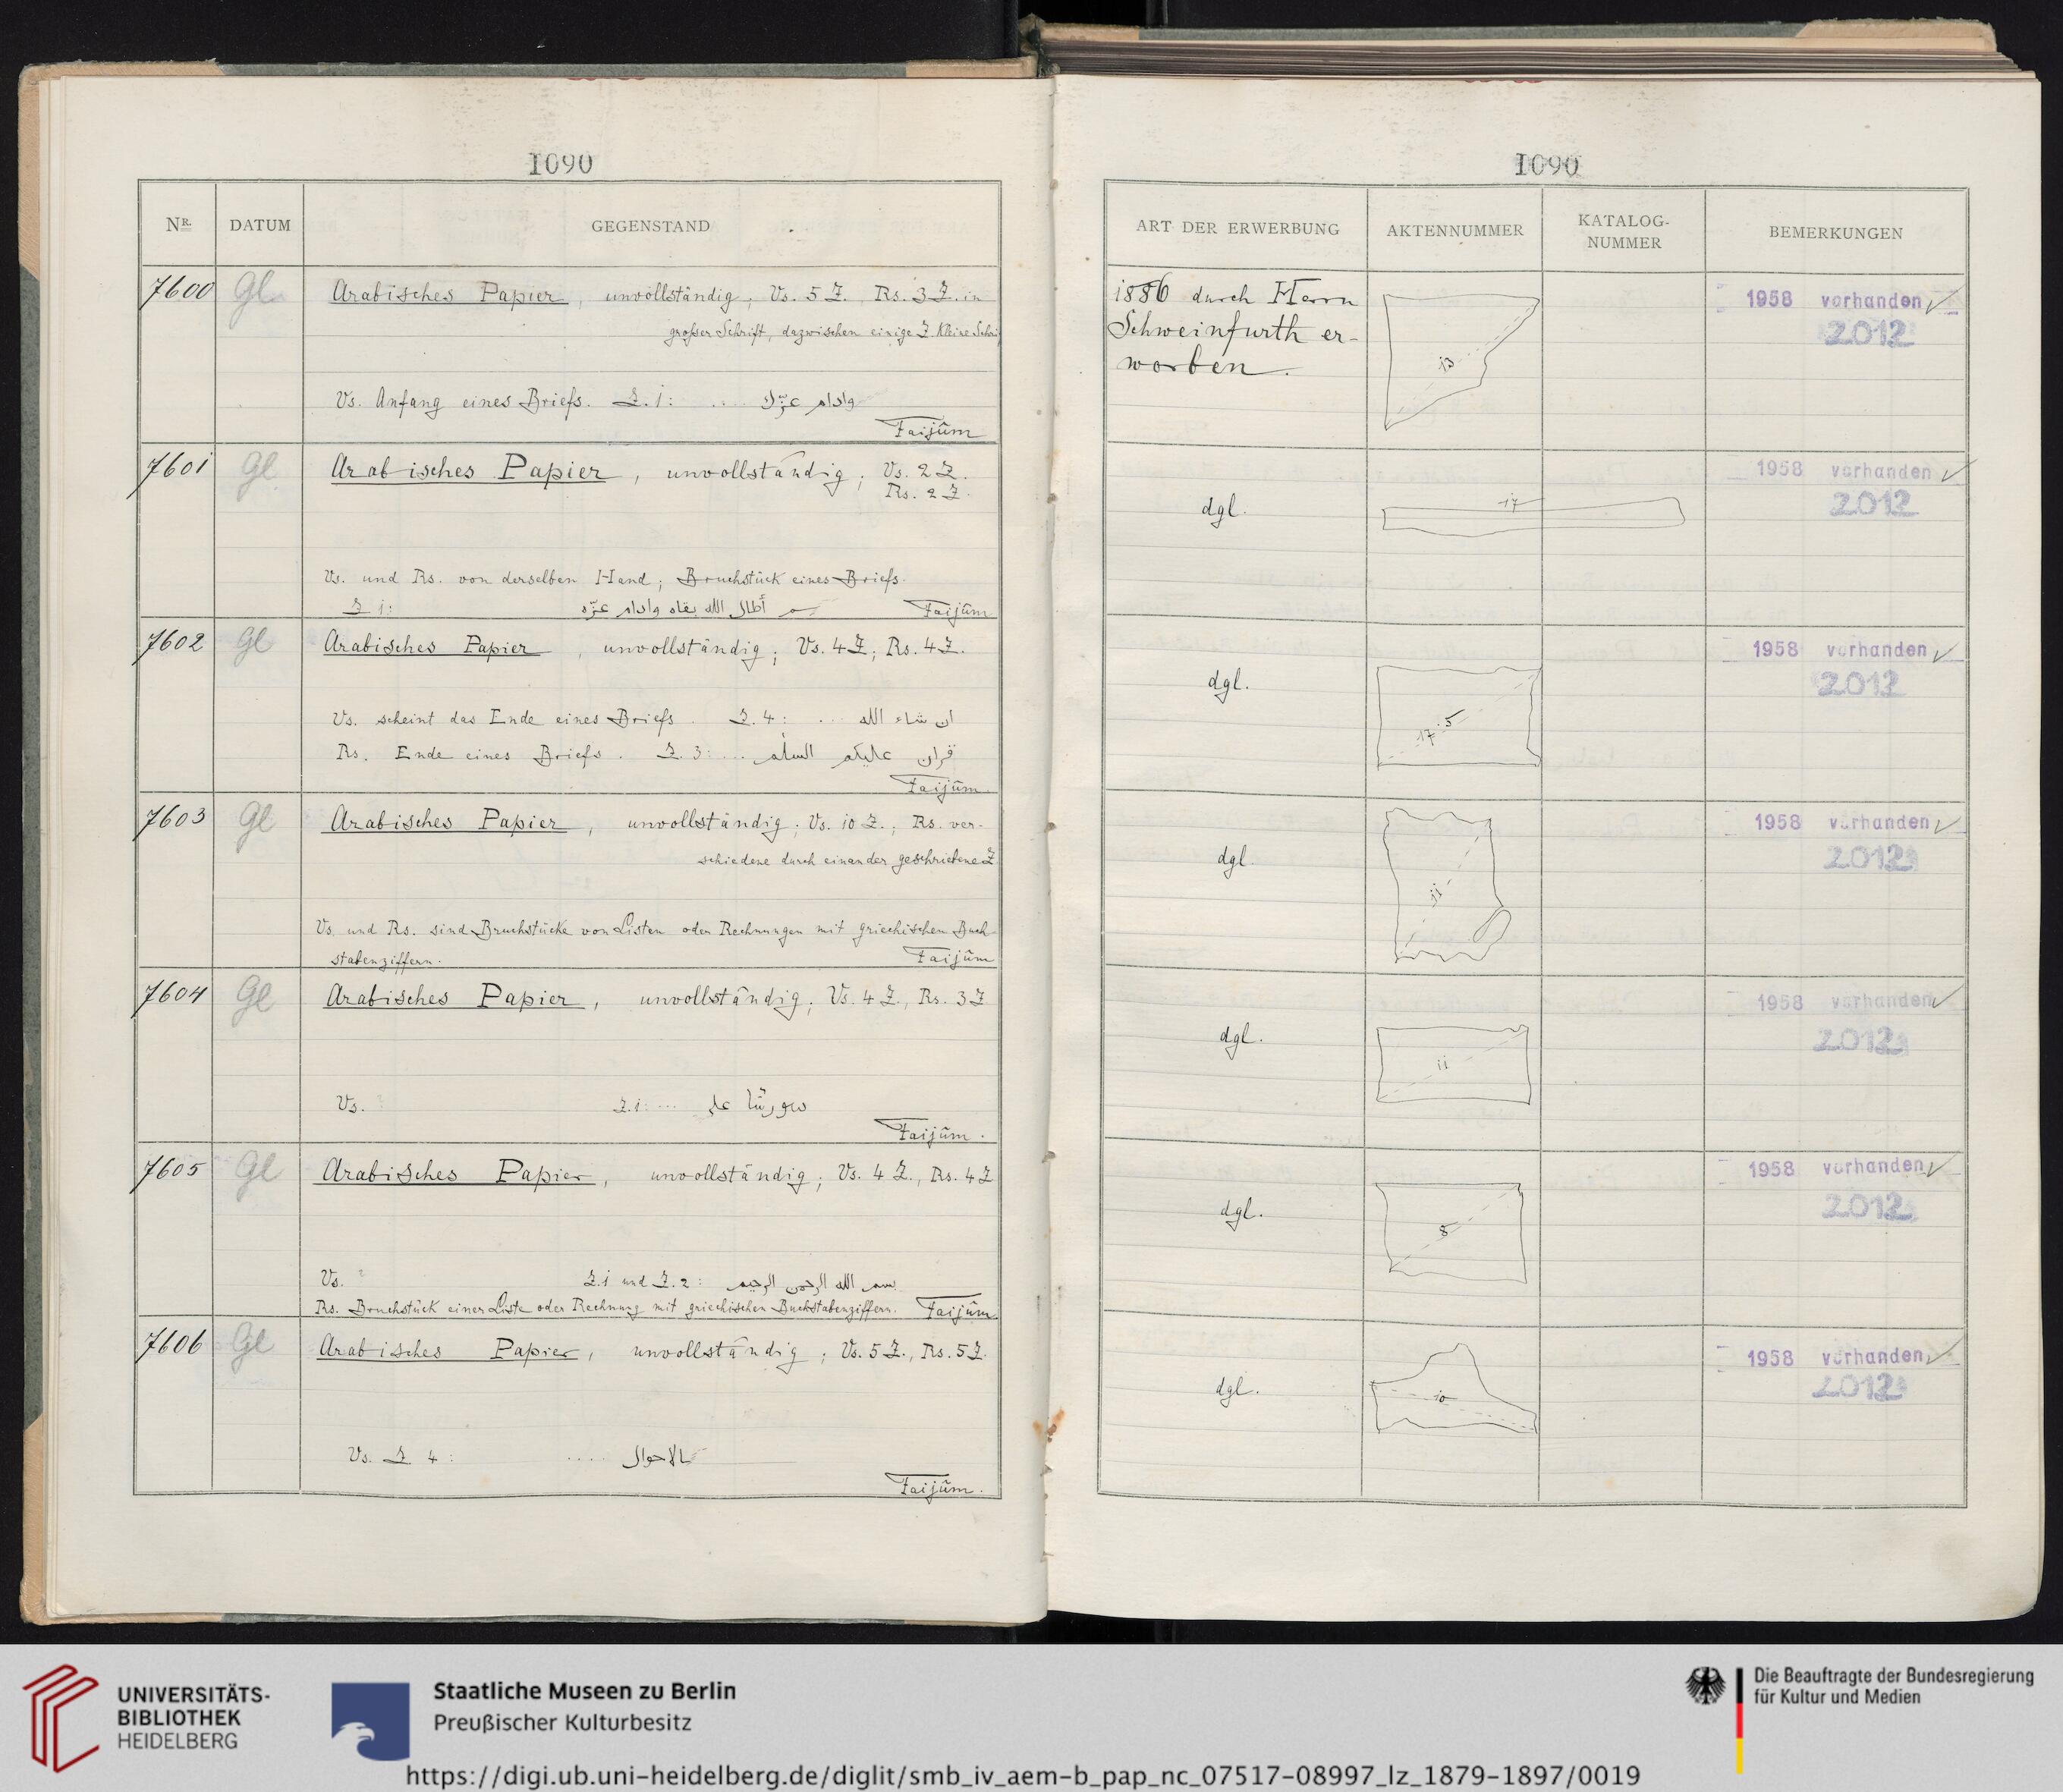 1090
NR. DATUM GEGENSTAND
7600 Gl Arabisches Papier, unvollständig; Vs. 5 Z. Rs. 3 Z. in
großer Schrift, dazwischen einige Z. kleine Schrift
Vs. Anfang eines Briefs. Z. 1: .. وادام عزّك
Faijûm
7601 Gl Arabisches Papier, unvollständig; Vs. 2 Z.
Rs. 2 Z.
Vs. und Rs. von derselben Hand; Bruchstück eines Briefs.
Z 1: أطال الله بقاه وادام عزّه Faijûm
7602 Gl Arabisches Papier, unvollständig; Vs. 4 Z; Rs. 4 Z.
Vs. scheint das Ende eines Briefs. Z. 4: ... ان شاء الله
Rs. Ende eines Briefs. Z. 3: ... عليكم السلم
Faijûm
7603 Gl Arabisches Papier, unvollständig; Vs. 10 Z.; Rs. ver-
schiedene durch einander geschriebene Z
Vs. und Rs. sind Bruchstücke von Listen oder Rechnungen mit griechischen Buch
stabenziffern. Faijûm
7604 Gl Arabisches Papier, unvollständig; Vs. 4 Z., Rs. 3 Z
Vs. Z. 1: ...
Faijûm.
7605 Gl Arabisches Papier, unvollständig; Vs. 4 Z., Rs. 4 Z
Vs. ? Z. 1 und Z. 2: بسم الله الرحمن الرحيم
Rs. Bruchstück einer Liste oder Rechnung mit griechischen Buchstabenziffern. Faijûm
7606 Gl Arabisches Papier, unvollständig; Vs. 5 Z., Rs. 5 Z.
Vs. Z 4: .... الاحوال
Faijûm.
1090
ART DER ERWERBUNG AKTENNUMMER KATALOG-NUMMER BEMERKUNGEN
1886 durch Herrn
Schweinfurth er-
worben.
13
1958 vorhanden ✓
2012
dgl. 17
1958 vorhanden ✓
2012
dgl. 17,5
1958 vorhanden ✓
2012
dgl. 11
1958 vorhanden ✓
2012
dgl. 11
1958 vorhanden ✓
2012
dgl. 8
1958 vorhanden ✓
2012
dgl. 10
1958 vorhanden ✓
2012
UNIVERSITÄTS-
BIBLIOTHEK
HEIDELBERG
Staatliche Museen zu Berlin
Preußischer Kulturbesitz
Die Beauftragte der Bundesregierung
für Kultur und Medien
https://digi.ub.uni-heidelberg.de/diglit/smb_iv_aem-b_pap_nc_07517-08997_lz_1879-1897/0019